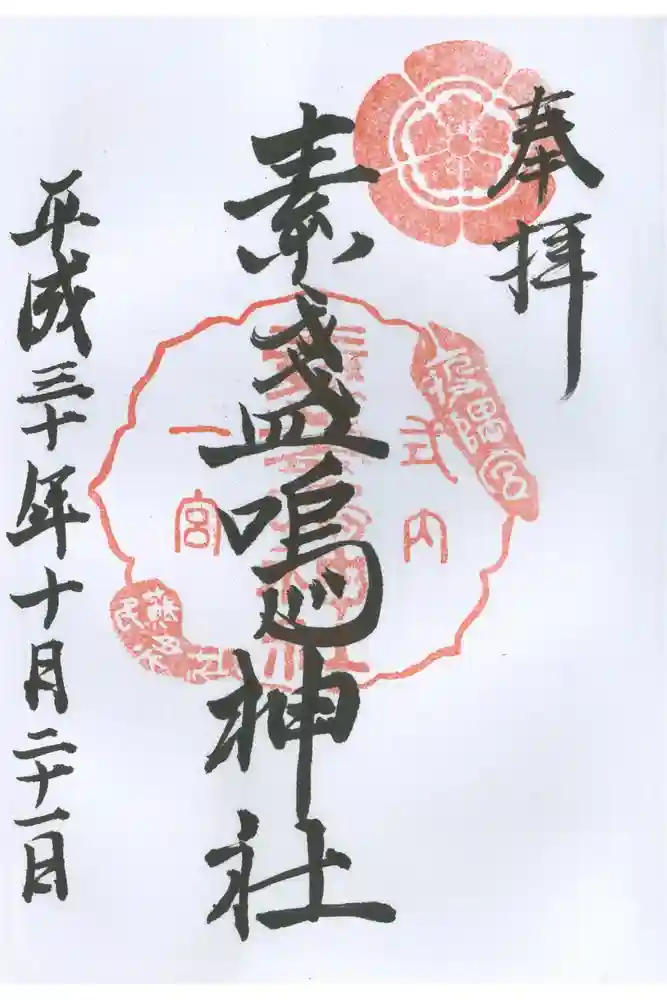 奉拝
式内
素盞嗚神社
一宮
平成三十年十月二十一日